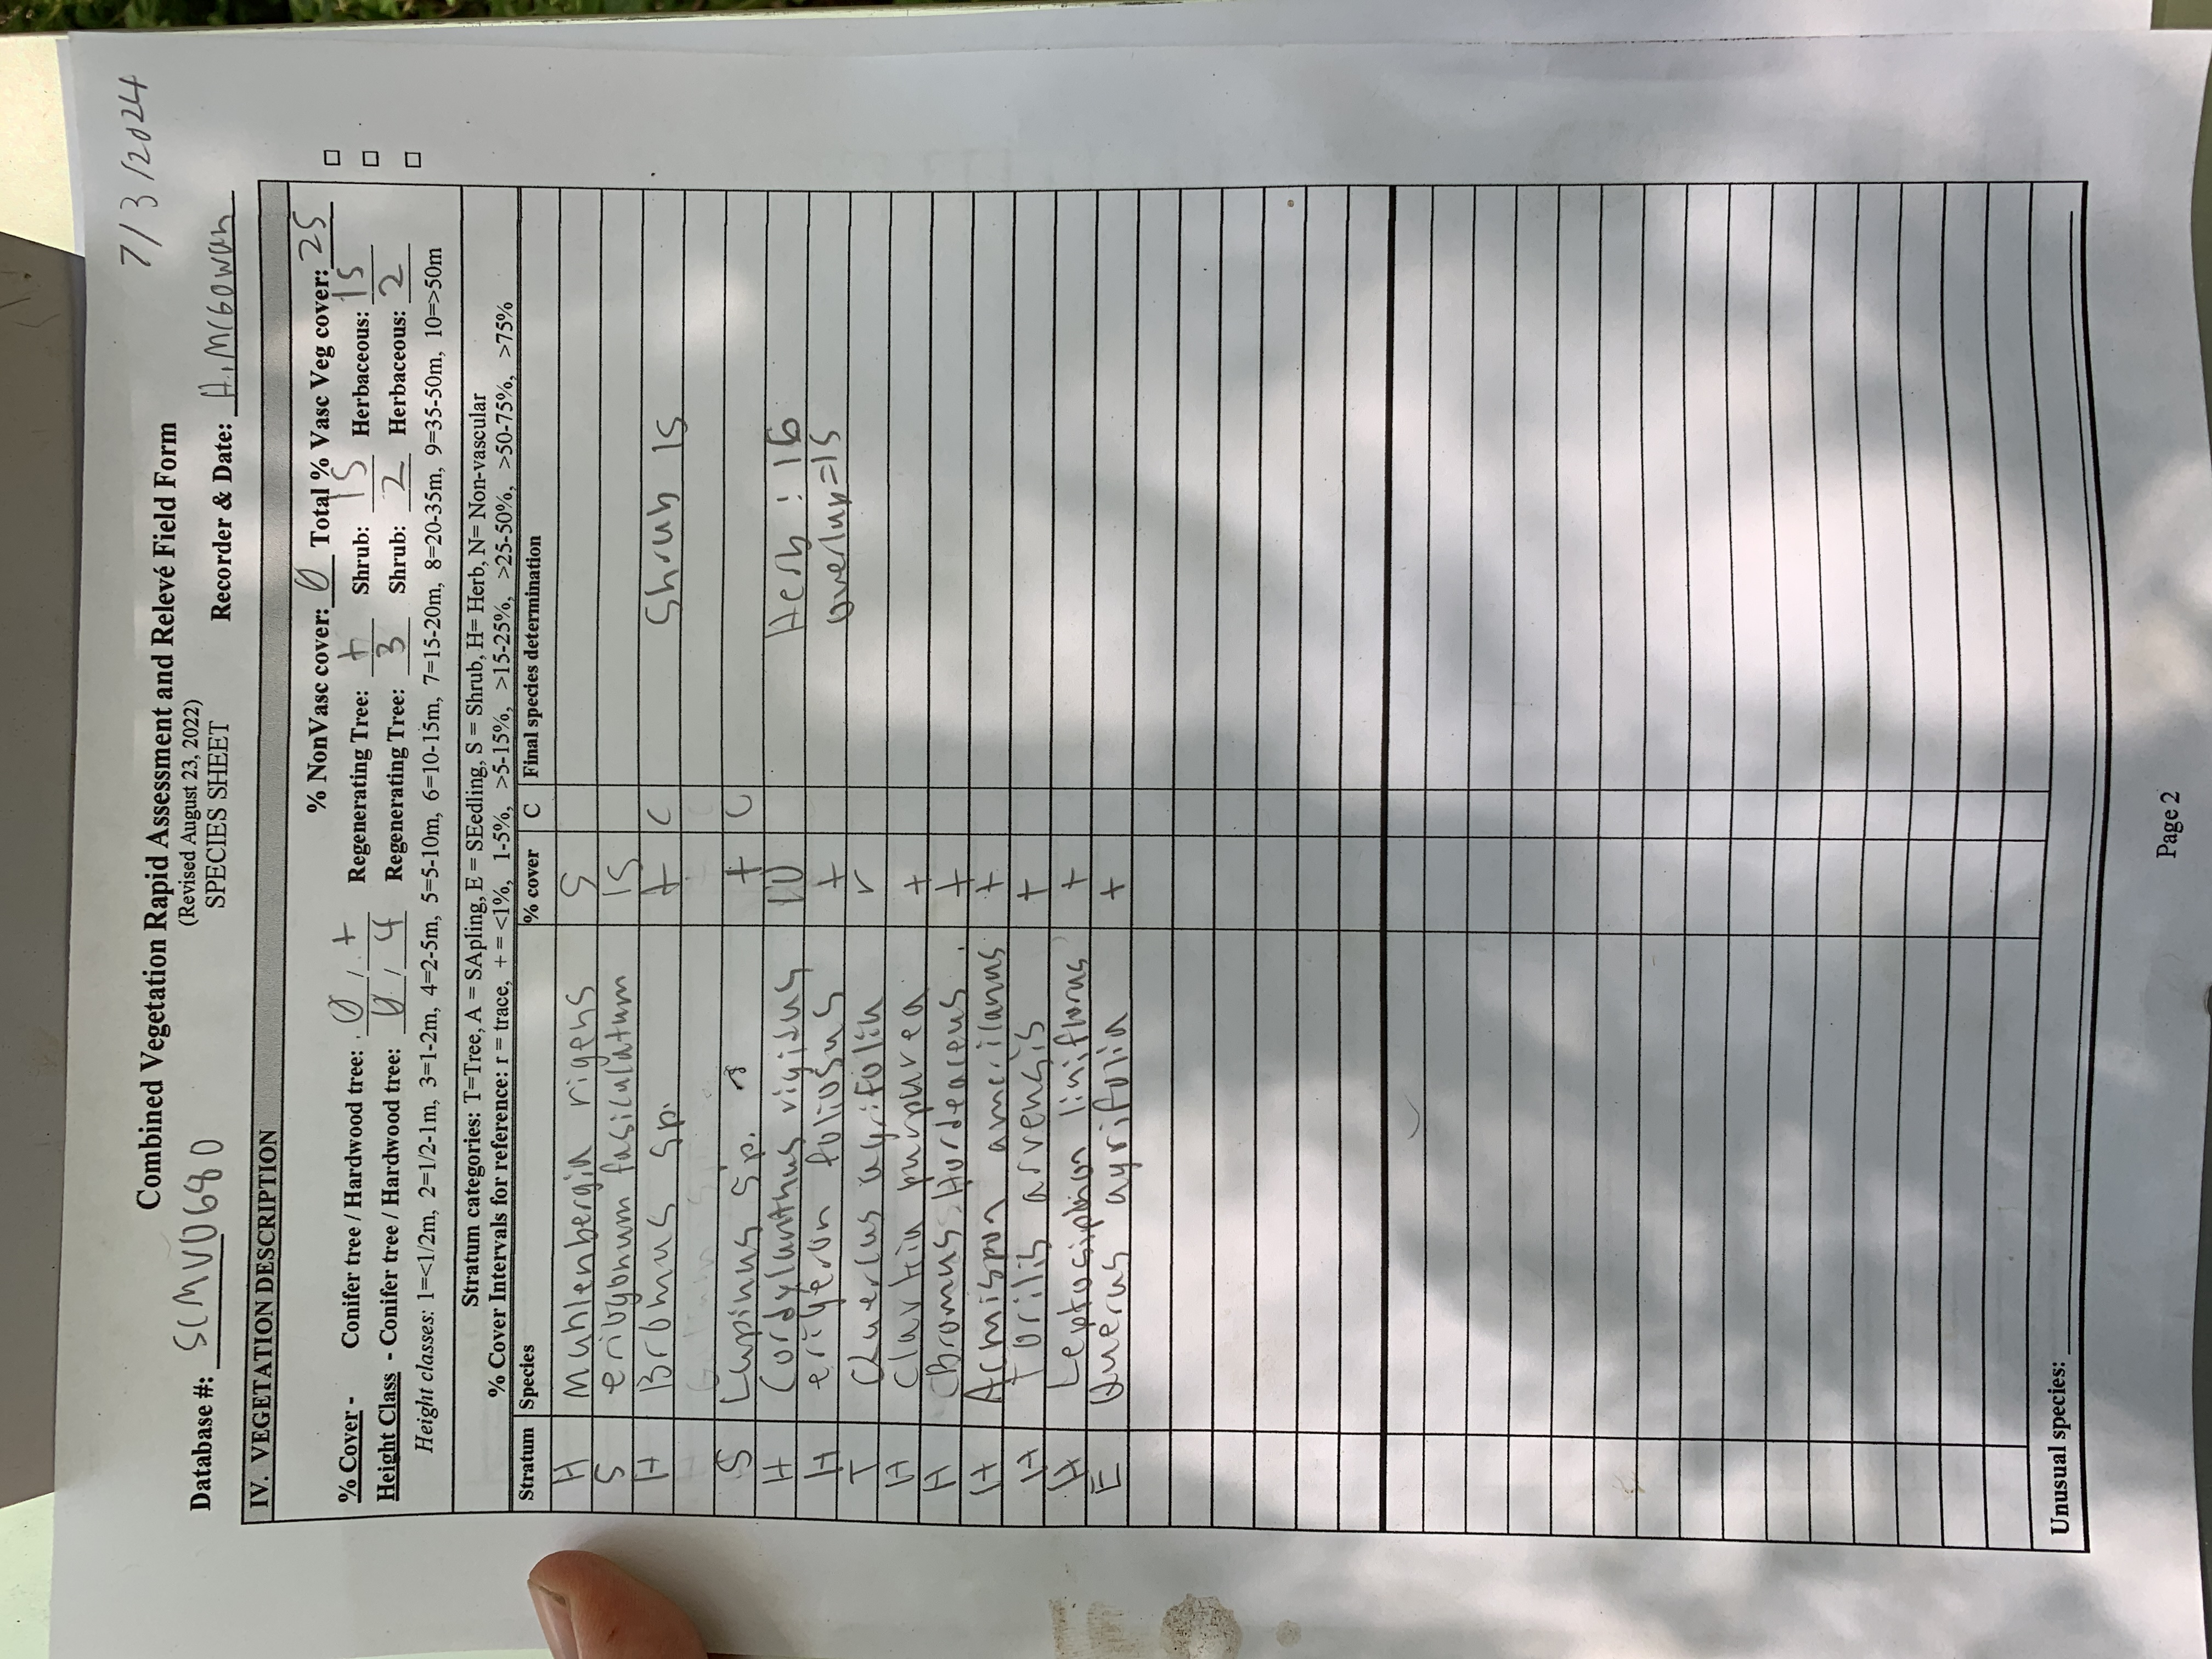 7/3/2024
Combined Vegetation Rapid Assessment and Relevé Field Form
(Revised August 23, 2022)
SPECIES SHEET
Database #: SCMV0680 Recorder & Date: A. McGowan
IV. VEGETATION DESCRIPTION
% NonVasc cover: 0 Total % Vasc Veg cover: 25
% Cover - Conifer tree / Hardwood tree: 0 / + Regenerating Tree: + Shrub: 15 Herbaceous: 15
Height Class - Conifer tree / Hardwood tree: 0 / 4 Regenerating Tree: 3 Shrub: 2 Herbaceous: 2
Height classes: 1=<1/2m, 2=1/2-1m, 3=1-2m, 4=2-5m, 5=5-10m, 6=10-15m, 7=15-20m, 8=20-35m, 9=35-50m, 10=>50m
Stratum categories: T=Tree, A = SApling, E = SEedling, S = Shrub, H= Herb, N= Non-vascular
% Cover Intervals for reference: r = trace, + = <1%, 1-5%, >5-15%, >15-25%, >25-50%, >50-75%, >75%
Stratum Species % cover C Final species determination
H Muhlenbergia rigens 5
S eriogonum fasiculatum 15
H Bromus sp. + C Shrub 15
S Lupinus sp. + C
H Cordylanthus rigisus 10 Herb : 16
H erigeron foliosus + overlap=15
T Quercus agrifolia r
H Clarkia purpurea +
H Bromus Hordeaceus +
H Acmispon americanus +
H Torilis arvensis +
H Leptosiphon liniflorus +
E Querus agrifolia +
Unusual species:
Page 2